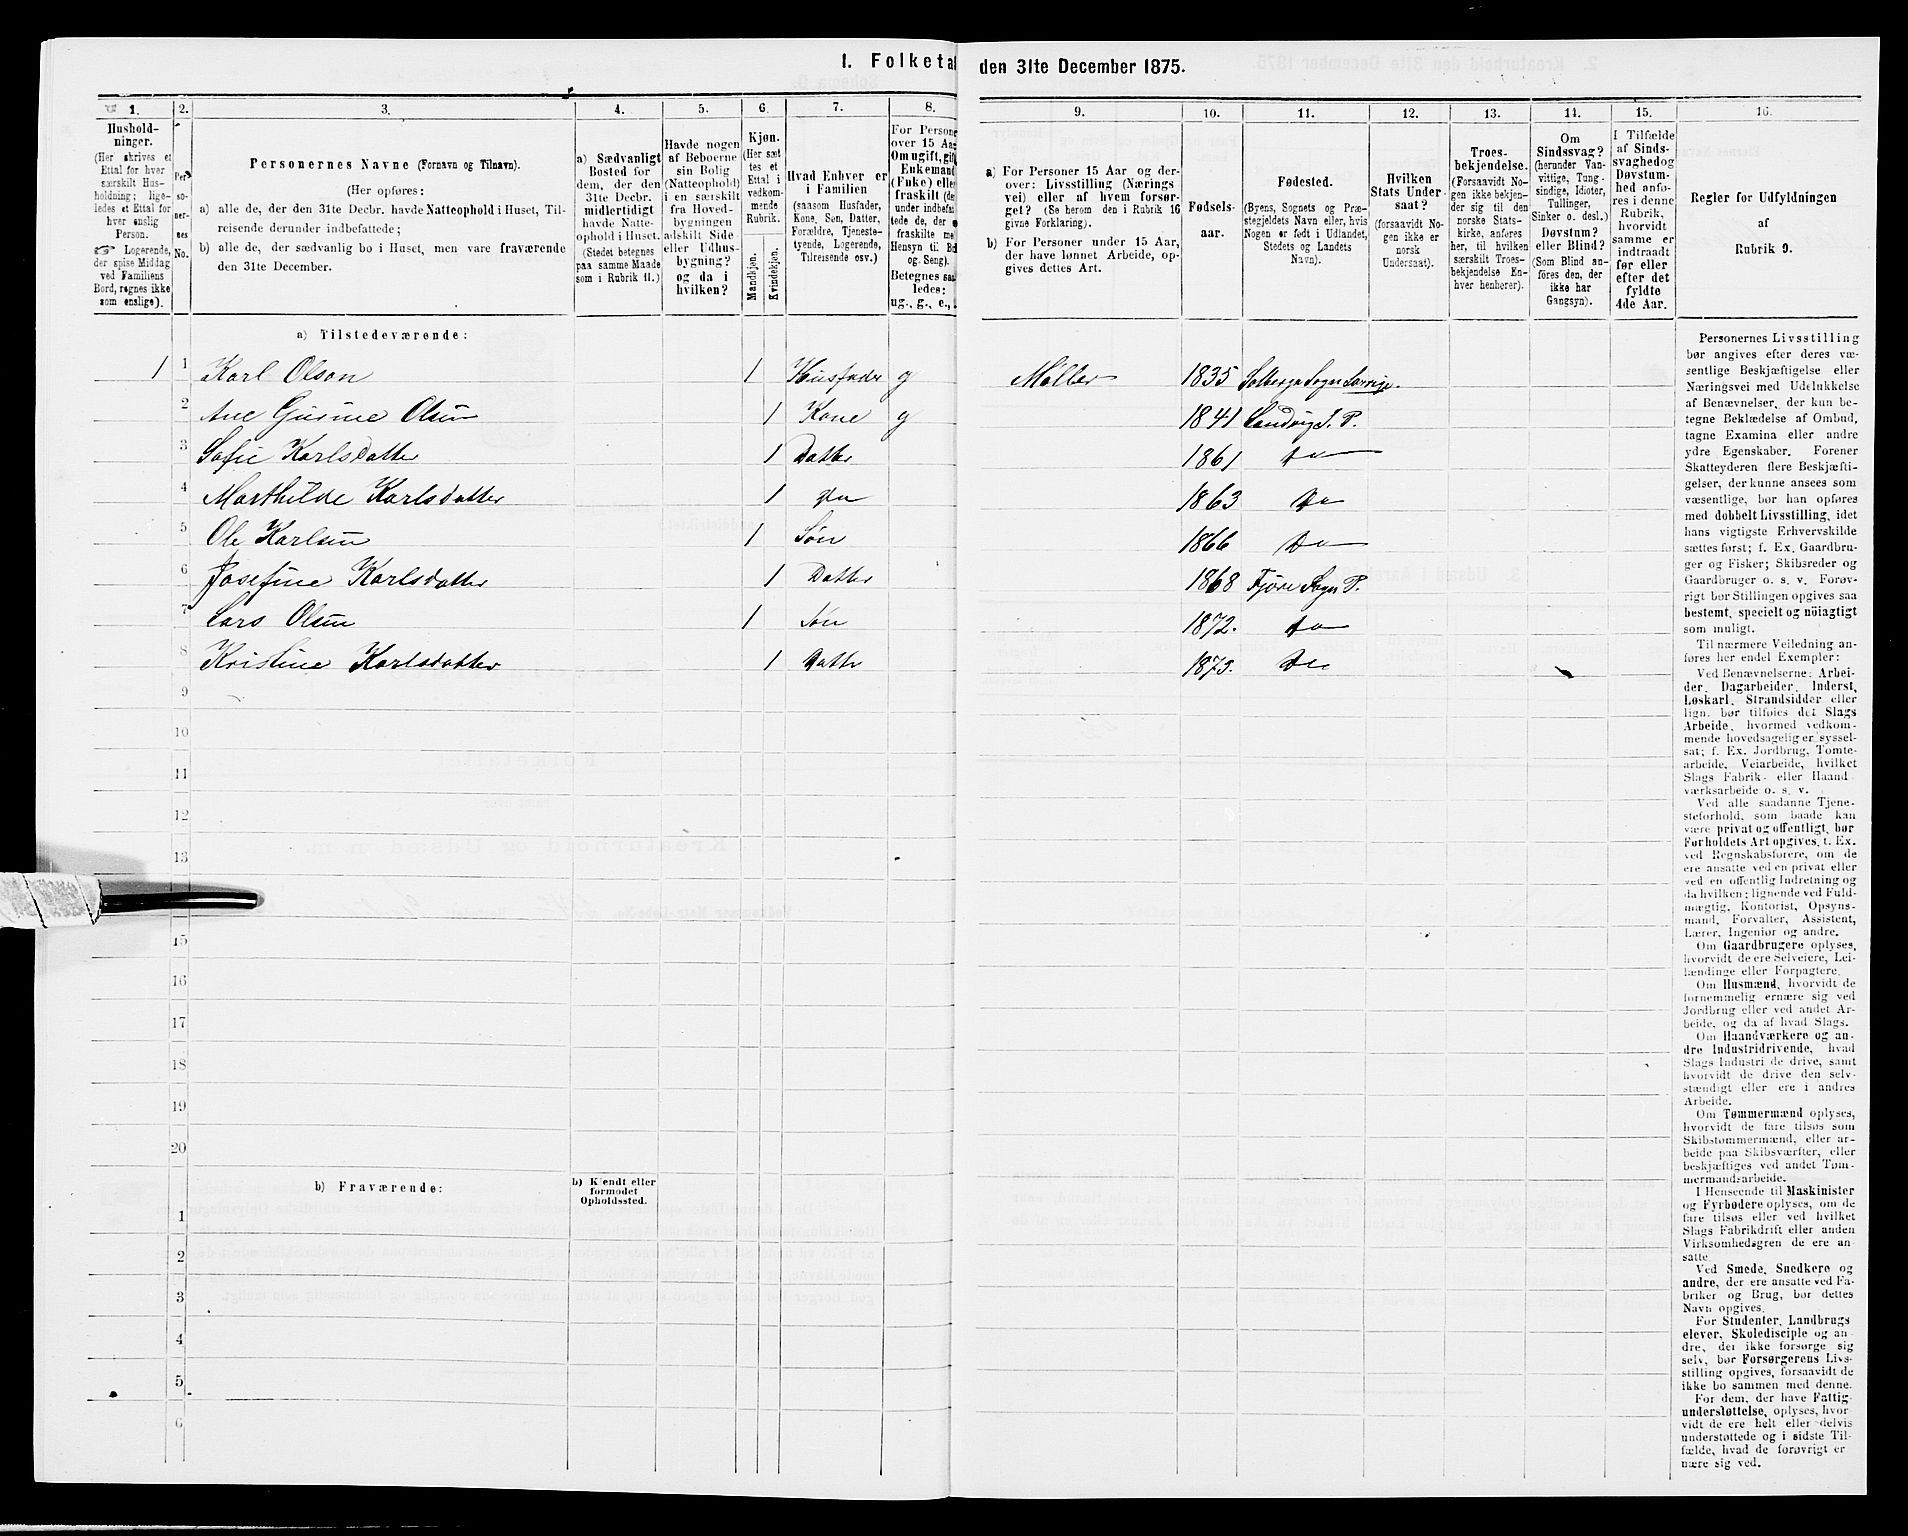 1. Folketal
den 31te December 1875.
1. 2. 3. 4. 5. 6. 7. 8. 9. 10. 11. 12. 13. 14. 15. 16.
Hushold-
ninger.
(Her skrives et
Ettal for hver
særskilt Hus-
holdning; lige-
ledes et Ettal for
hver enslig
Person.
☞ Logerende,
der spise Middag
ved Familiens
Bord, regnes ikke
som enslige).
Per-
so-
ner-
nes
No.
Personernes Navne (Fornavn og Tilnavn).
(Her opføres:
a) alle de, der den 31te Decbr. havde Natteophold i Huset, Til-
reisende derunder indbefattede;
b) alle de, der sædvanlig bo i Huset, men vare fraværende
den 31te December.
a) Sædvanligt
Bosted for
dem, der den
31te Decbr.
midlertidigt
havde Natte-
ophold i Huset.
(Stedet betegnes
paa samme Maade
som i Rubrik 11.)
Havde nogen
af Beboerne
sin Bolig
(Natteophold)
i en særskilt
fra Hoved-
bygningen
adskilt Side
eller Udhus-
bygning?
og da i
hvilken?
Kjøn.
(Her sæt
tes et
Ettal i
vedkom-
mende
Rubrik.
Mandkjøn.
Kvindekjøn.
Hvad Enhver er
i Familien
(saasom Husfader,
Kone, Søn, Datter,
Forældre, Tjeneste-
tyende, Logerende,
Tilreisende osv.)
For Persone
over 15 Aar
Om ugift, gift
Enkemand
(Enke) eller
fraskilt (de
under indbefat
tede de, der e
fraskilte me
Hensyn til Bo
og. Seng).
Betegnes saa
ledes:
ug., g., e.,
a) For Personer 15 Aar og der-
over: Livsstilling (Nærings
vei) eller af hvem forsør-
get? (Se herom den i Rubrik 16
givne Forklaring).
b) For Personer under 15 Aar,
der have lønnet Arbeide, op-
gives dettes Art.
Fødsels-
aar.
Fødested.
(Byens, Sognets og Præ-
stegjeldets Navn eller, hvis
Nogen er født i Udlandet,
Stedets og Landets
Navn).
Hvilken
Stats Under-
saat?
(forsaavidt No-
gen ikke er
norsk
Undersaat).
Troes-
bekjendelse.
(Forsaavidt No-
gen ikke bekjen-
der sig til den
norske Stats-
kirke, anføres
her, til hvilken
særskilt Troes-
bekjendelse En-
hver henhører).
Om
Sindssvag?
(herunder Van-
vittige, Tung-
sindige, Idioter,
Tullinger,
Sinker o. desl.)
Døvstum?
eller Blind?
(Som Blind an-
føres den, der
ikke har
Gangsyn).
I Tilfælde
af Sinds-
svaghed og
Døvstum-
hed anfø-
res i denne
Rubrik,
hvorvidt
samme er
indtraadt
før eller
efter det
fyldte
4de Aar.
Regler for Udfyldningen
af
Rubrik 9.
a) Tilstedeværende:
1 1 Karl Olson 1 Husfader g Møller 1835 Solberga Sogn Sverige.
2 Ane Gurine Olsen 1 Kone g 1841 Landvig S. P.
3 Sofie Karlsdatter 1 Datter 1861 Do
4 Marthilde Karlsdatter 1 Do 1863 Do
5 Ole Karlsen 1 Søn 1866 Do
6 Josefine Karlsdatter 1 Datter 1868 Fjære Sogn P.
7 Lars Olsen 1 Søn 1872. Do
8 Kristine Karlsdatter 1 Datter 1873. Do
9
10
11
12
13
15
16
17
18
19
20
b) Fraværende:
b) Kjendt eller
formodet
Opholdssted.
1
2
3
4
5
6
Personernes Livsstilling
bør angives efter deres væ-
sentlige Beskjæftigelse eller
Næringsvei med Udelukkelse
af Benævnelser, der kun be-
tegne Beklædelse af Ombud,
tagne Examina eller andre
ydre Egenskaber. Forener
Skatteyderen flere Beskjæfti-
gelser, der kunne ansees som
væsentlige, bør han opføres
med dobbelt Livsstilling, idet
hans vigtigste Erhvervskilde
sættes først; f. Ex. Gaardbru-
ger og Fisker; Skibsreder og
Gaardbruger o. s. v. Forøv-
rigt bør Stillingen opgives saa
bestemt, specielt og nöiagtigt
som muligt.
Til nærmere Veiledning an-
føres her endel Exempler:
Ved Benævnelserne: Arbei-
der, Dagarbeider, Inderst,
Løskarl, Strandsidder eller
lign. bør tilføies det Slags
Arbeide, hvormed vedkom-
mende hovedsagelig er syssel-
sat; f. Ex. Jordbrug, Tomte-
arbeide, Veiarbeide, hvilket
Slags Fabrik- eller Haand-
værksarbeide o. s. v.
Ved alle saadanne Tjene-
steforhold, som baade kan
være privat og offentligt, bør
Forholdets Art opgives, f. Ex.
ved Regnskabsførere, om de
ere ansatte ved en privat eller
ved en offentlig Indretning og
da hvilken; lignende ved Fuld-
mægtig, Kontorist, Opsyns-
mand, Forvalter, Assistent,
Lærer, Ingeniør og andre.
Om Gaardbrugere oplyses,
hvorvidt de ere Selveiere, Lei-
lændinge eller Forpagtere.
Om Husmænd, hvorvidt de
fornemmelig ernære sig ved
Jordbrug eller ved andet Ar-
beide, og da af hvad Slags.
Om Haandværkere og an-
dre Industridrivende, hvad
Slags Industri de drive, samt
hvorvidt de drive den selv-
stændigt eller ere i andres
Arbeide.
Om Tømmermænd oplyses,
hvorvidt de fare tilsøs som
Skibstømmermænd, eller ar-
beide paa Skibsværfter, eller
beskjæftiges ved andet Tøm-
mermandsarbeide.
I Henseende til Maskinister
og Fyrbødere oplyses, om de
fare tilsøs eller ved hvilket
Slags Fabrikdrift eller anden
Virksomhedsgren de ere an-
satte
Ved Smede, Snedkere og
andre, der ere ansatte ved Fa-
briker og Brug, bør dettes
Navn opgives.
For Studenter, Landbrugs
elever, Skoledisciple og an-
dre, der ikke forsørge sig
selv, bør Forsørgerens Livs-
stilling opgives, forsaavidt de
ikke bo sammen med denne.
For dem, der have Fattig-
understøttelse, oplyses, hvor-
vidt de ere helt eller delvis
understøttede og i sidste Til-
fælde, hvad de forøvrigt er
nære sig ved.